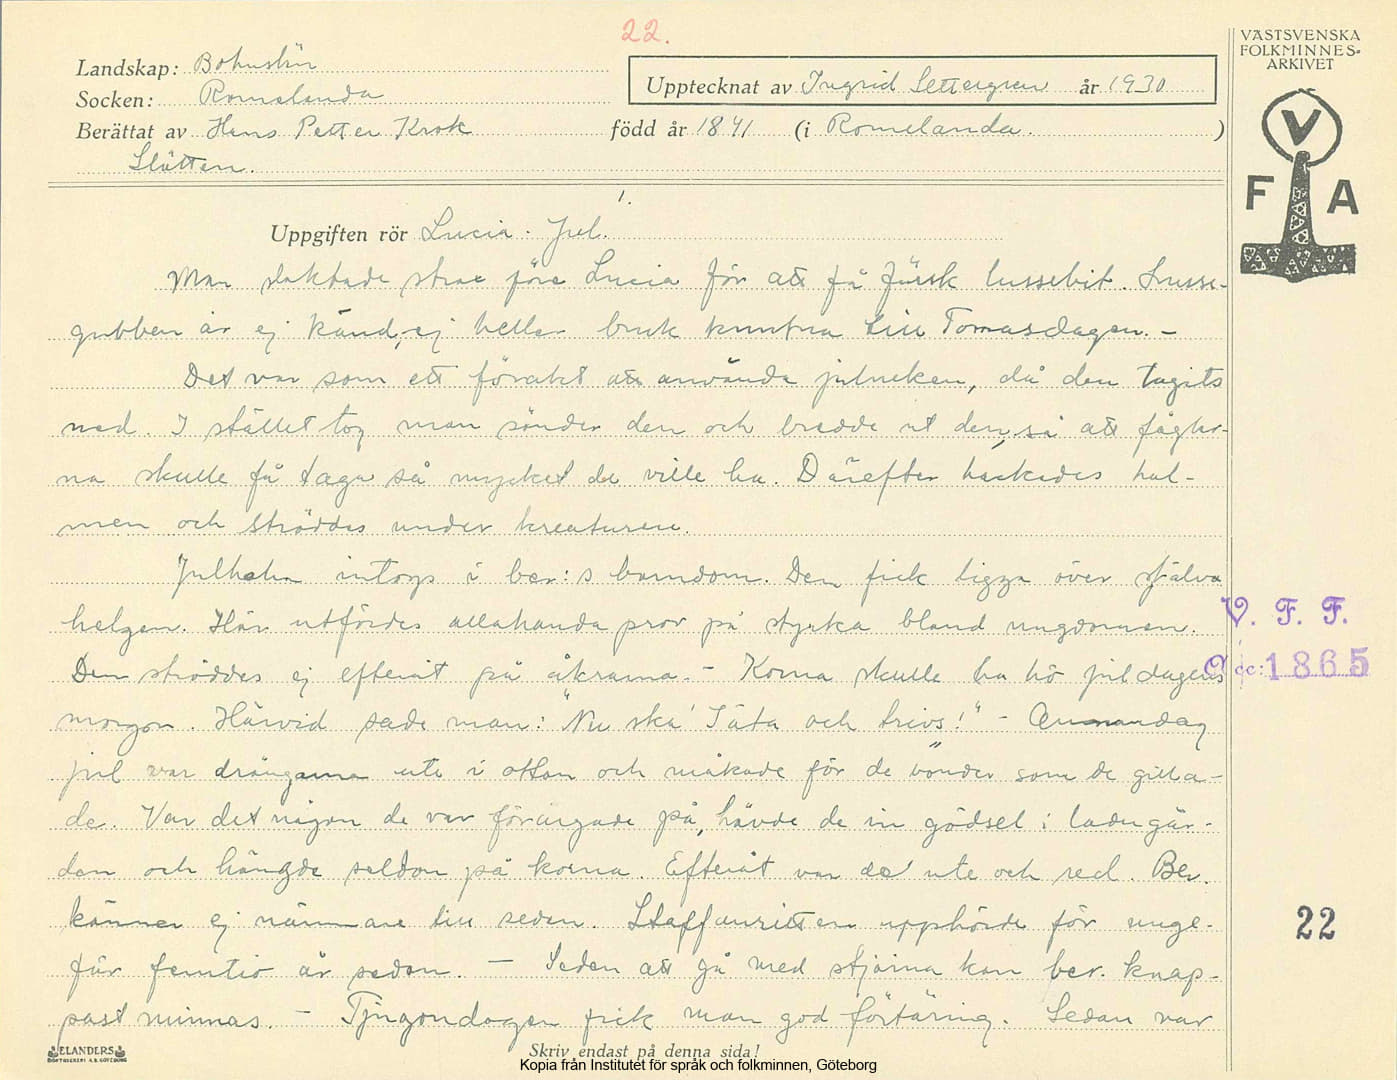 22.
VÄSTSVENSKA
FOLKMINNES-
ARKIVET
Landskap: Bohuslän
Socken: Romelanda
Upptecknat av Ingrid Settergren år 1930
Berättat av Hans Petter Krok född år 1841 (i Romelanda. )
Slätten.
V
F A
1.
Uppgiften rör Lucia. Jul.
Man slaktade strax före Lucia för att få färsk lussebit. Lusse-
gubben är ej känd, ej heller bruk knutna till Tomasdagen. –
Det var som ett förakt att använda julneken, då den tagits
ned. I stället tog man sönder den och bredde ut den, så att fåglar-
na skulle få taga så mycket de ville ha. Därefter hackades hal-
men och ströddes under kreaturen.
Julhalm intogs i ber:s barndom. Den fick ligga över själva
helgen. Här utfördes allahanda prov på styrka bland ungdomen.
Den ströddes ej efteråt på åkrarna. – Korna skulle ha hö juldagens
morgon. Härvid sade man: "Nu ska' I äta och trivs!" – Annandag
jul var drängarna ute i ottan och mokade för de bönder som de gilla-
de. Var det någon de var förargade på, hävde de in gödsel i ladugår-
den och hängde seldon på korna. Efteråt var de ute och red. Ber.
känner ej närmare till seden. Staffansritten upphörde för unge-
fär femtio år sedan. – Seden att gå med stjärna kan ber. knap-
past minnas. – Tjugondagen fick man god förtäring. Sedan var
V. F. F.
Acc: 1865
22
ELANDERS
BOKTRYCKERI A.B. GÖTEBORG
Skriv endast på denna sida!
Kopia från Institutet för språk och folkminnen, Göteborg